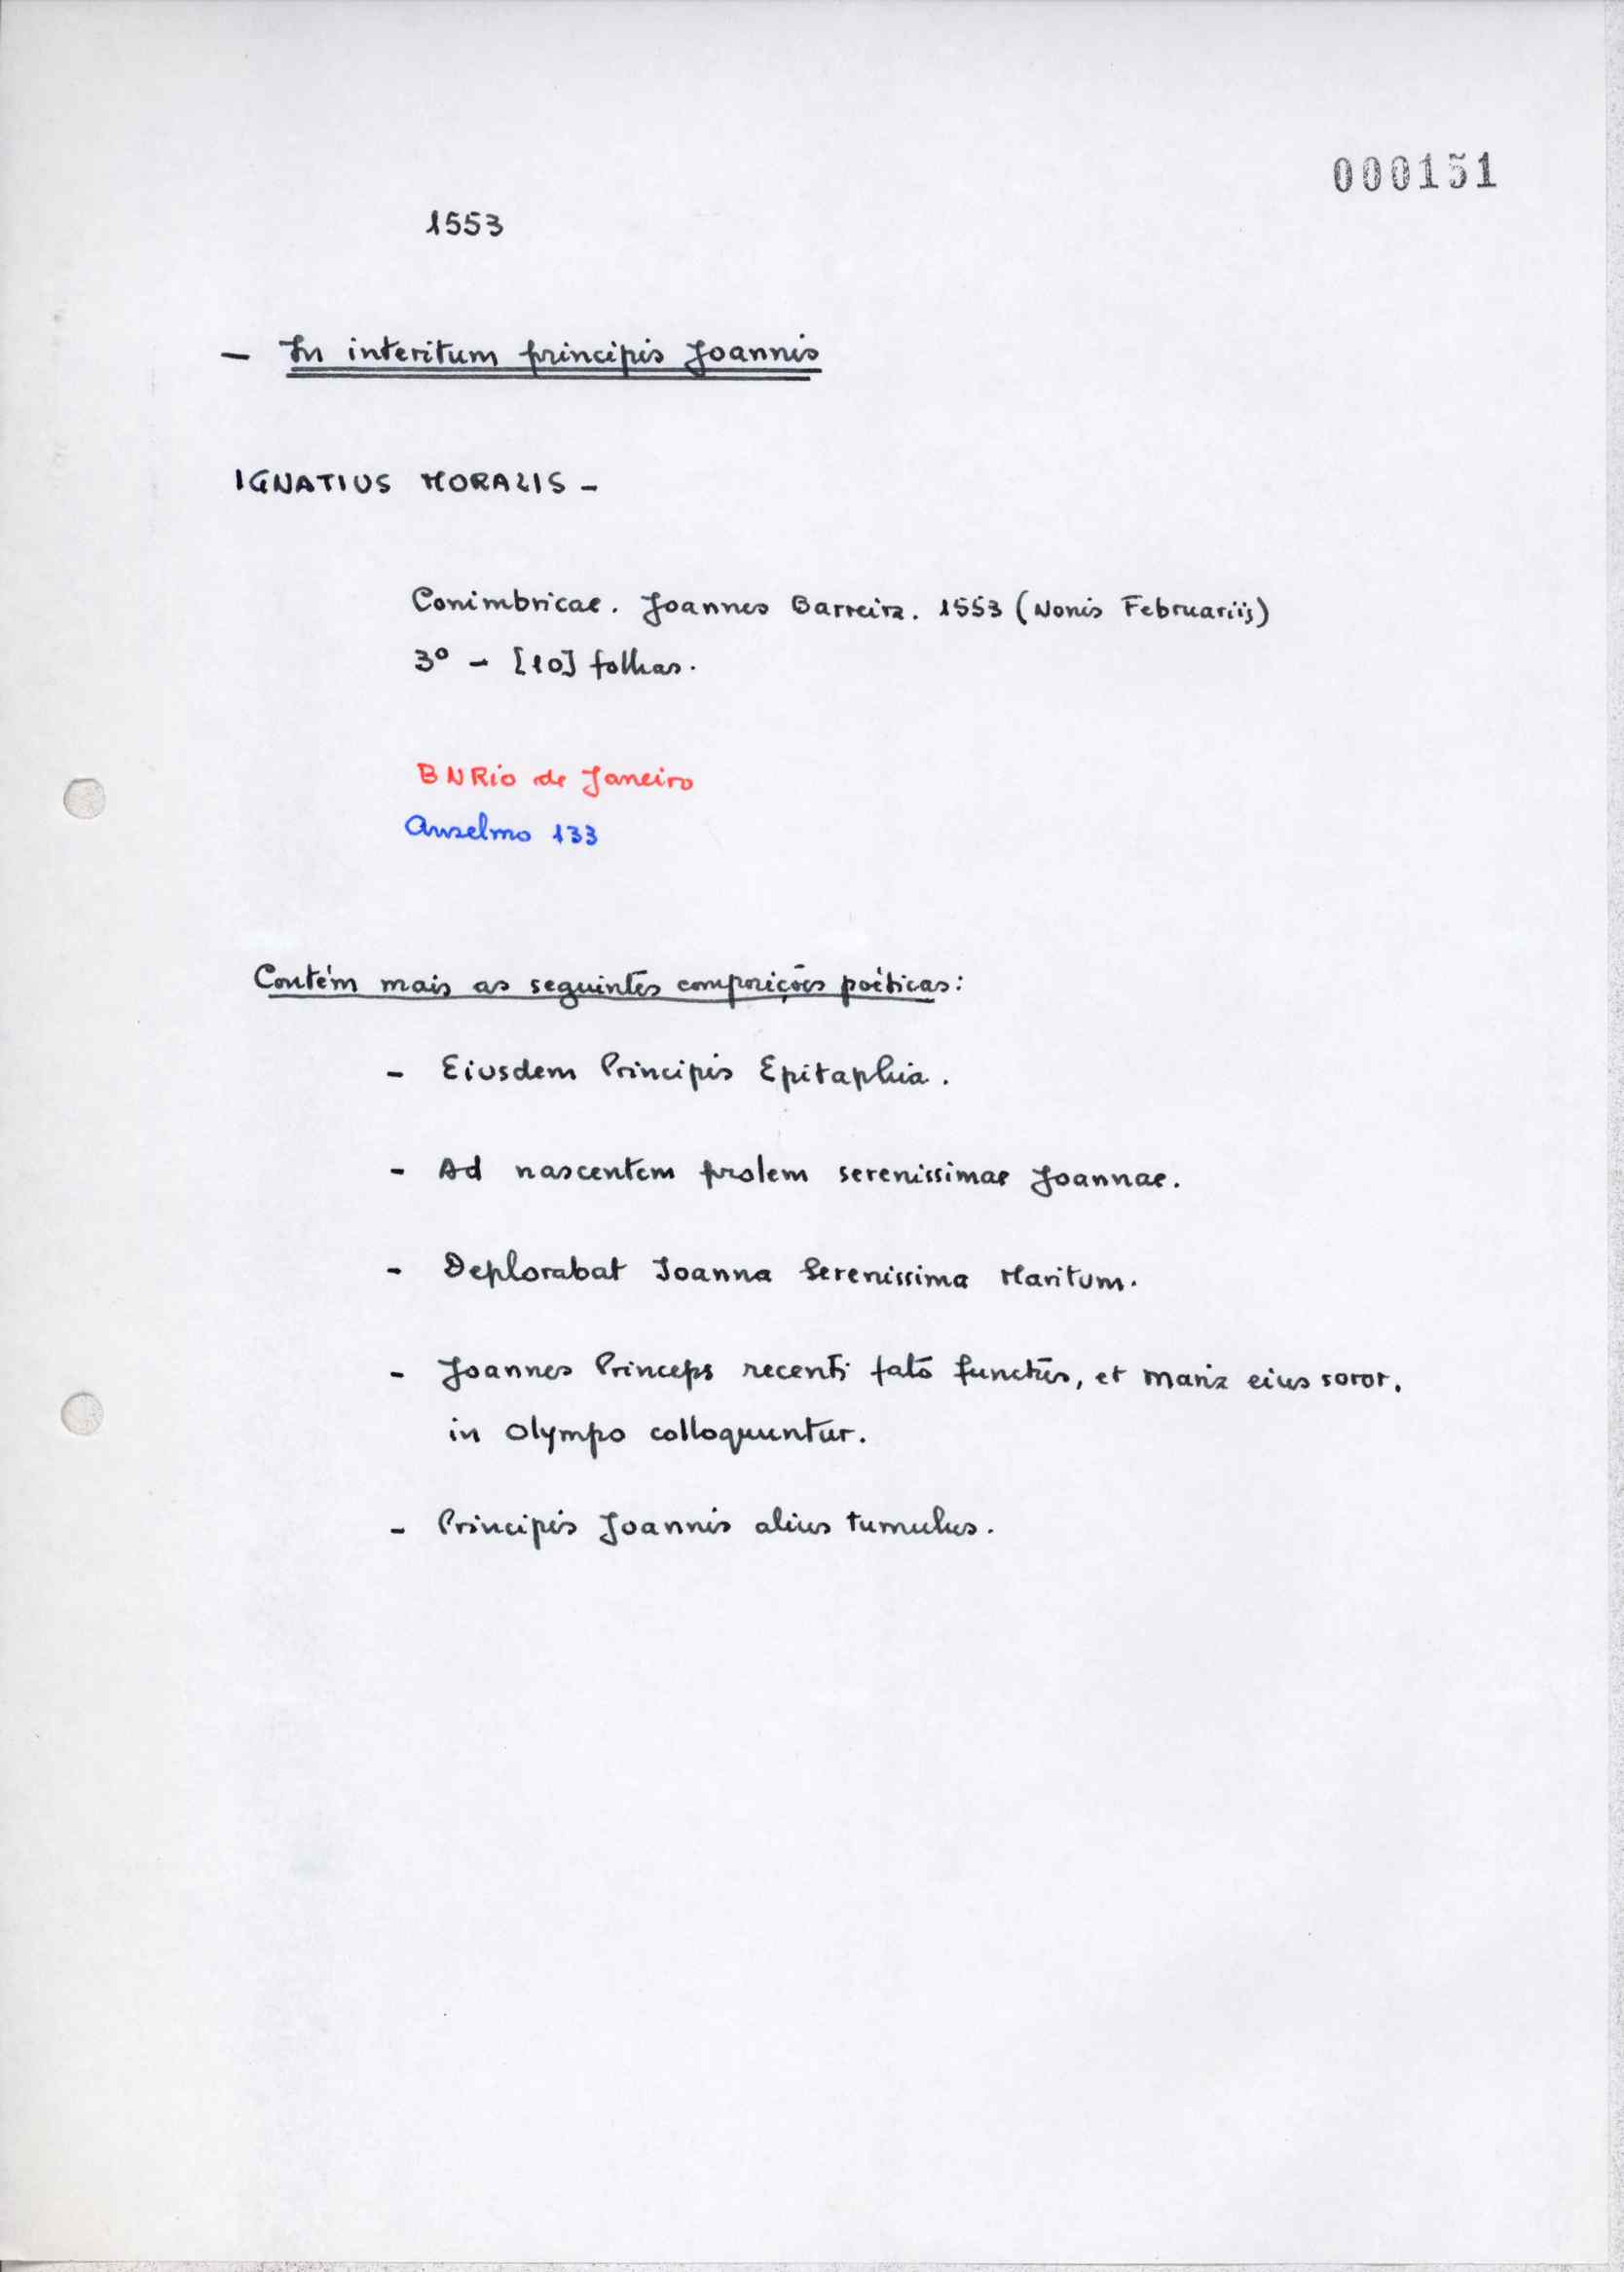 000151
1553
- In interitum principis Joannis
IGNATIUS MORALIS -
Conimbricae. Joannes Barreira. 1553 (Nonis Februariis)
3º - [10] folhas.
BNRio de Janeiro
Anselmo 133
Contém mais as seguintes composições poéticas:
- Eiusdem Principis Epitaphia.
- Ad nascentem prolem serenissimae Joannae.
- Deplorabat Ioanna Serenissima Maritum.
- Joannes Princeps recenti fato functus, et maria eius soror,
in Olympo colloquuntur.
- Principis Joannis alius tumulus.